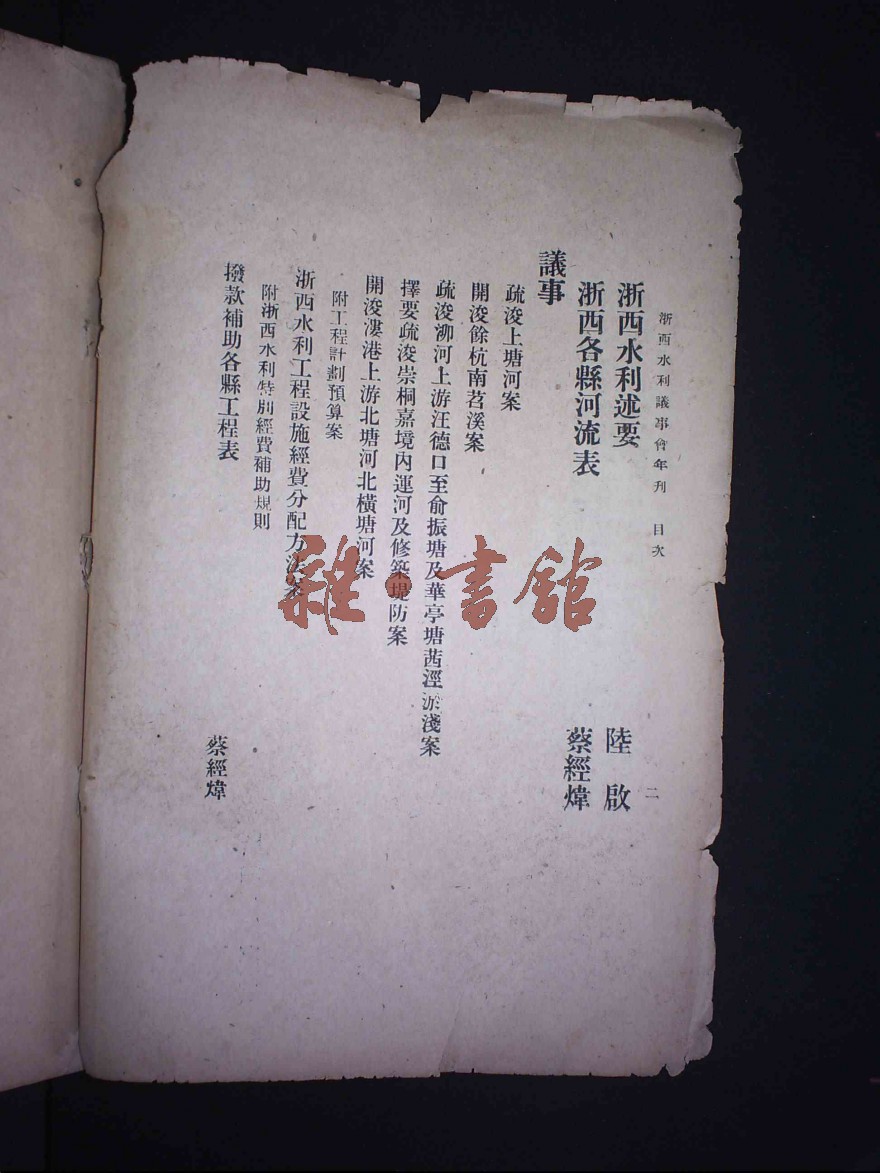 浙西水利議事會年刊 目次 二
浙西水利述要 陸啟
浙西各縣河流表 蔡經煒
議事
疏浚上塘河案
開浚餘杭南苕溪案
疏浚泖河上游汪德口至俞振塘及華亭塘茜涇淤淺案
擇要疏浚崇桐嘉境內運河及修築堤防案
開浚漊港上游北塘河北橫塘河案
附工程計劃預算案
浙西水利工程設施經費分配方法案
附浙西水利特別經費補助規則
撥款補助各縣工程表 蔡經煒
雜·書館